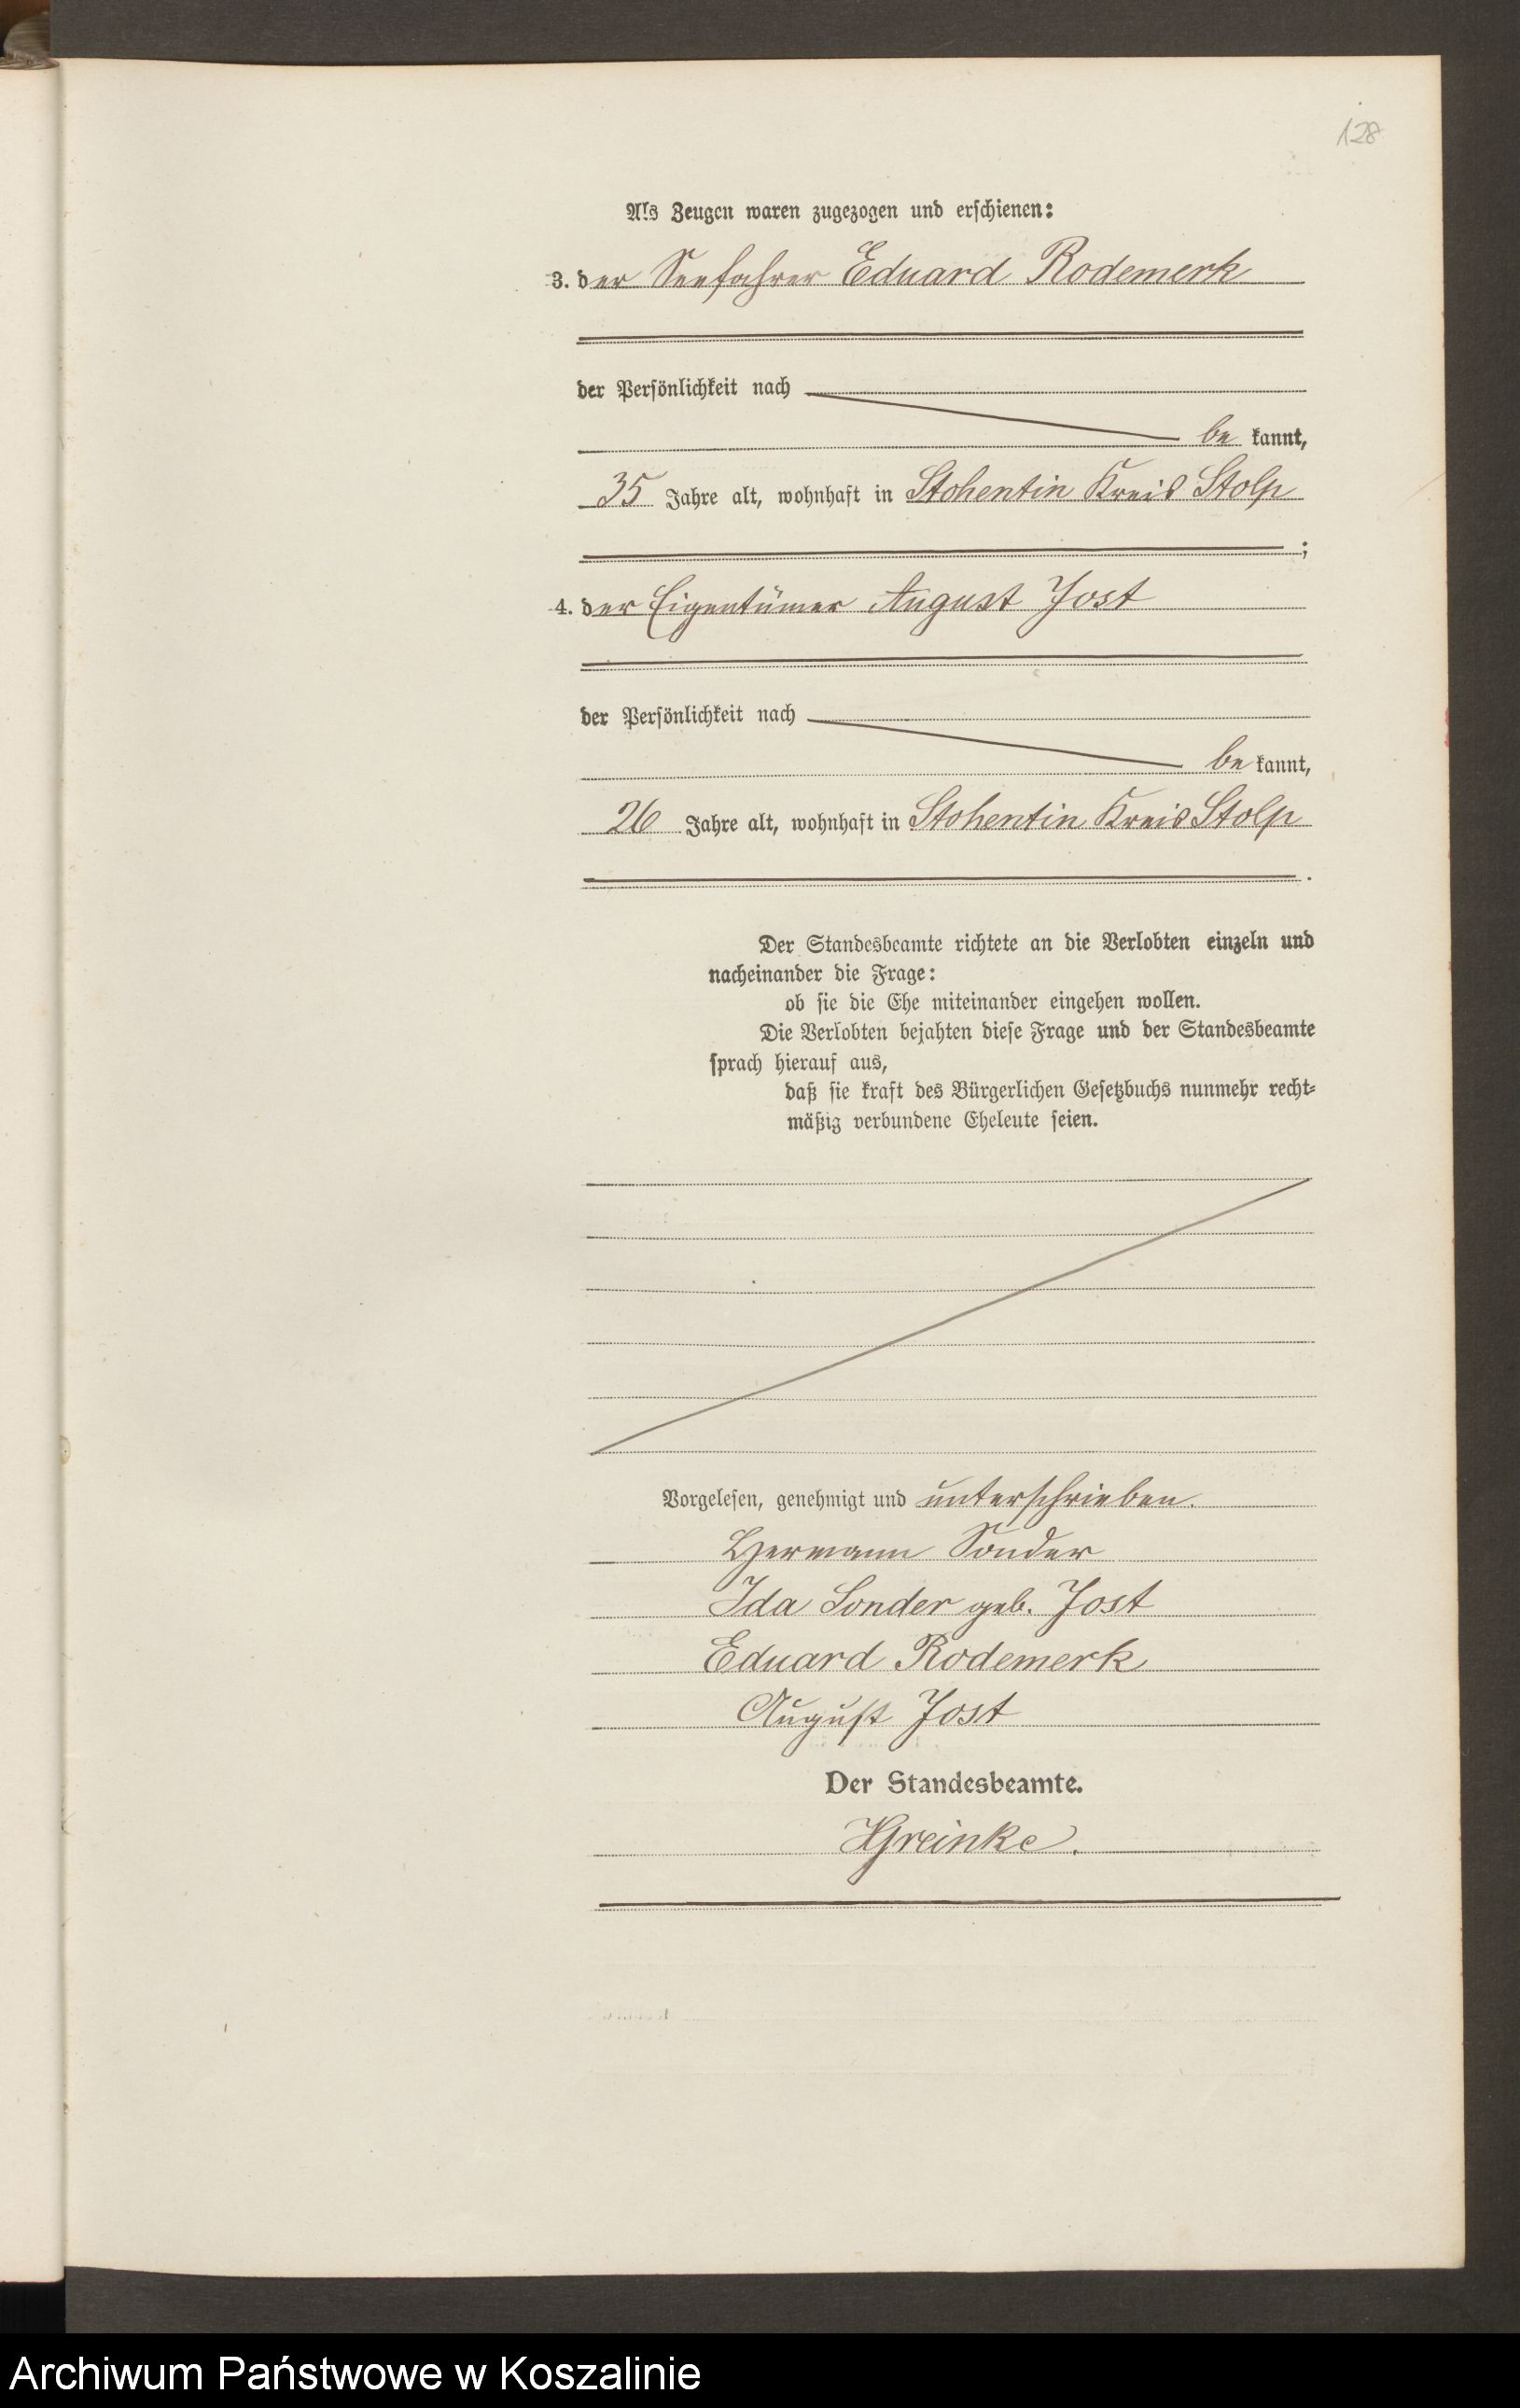 128
Als Zeugen waren zugezogen und erschienen:
3. der Seefahrer Eduard Rodemerk
der Persönlichkeit nach
be kannt,
35 Jahre alt, wohnhaft in Stohentin Kreis Stolp
;
4. der Eigentümer August Jost
der Persönlichkeit nach
be kannt,
26 Jahre alt, wohnhaft in Stohentin Kreis Stolp
.
Der Standesbeamte richtete an die Verlobten einzeln und
nacheinander die Frage:
ob sie die Ehe miteinander eingehen wollen.
Die Verlobten bejahten diese Frage und der Standesbeamte
sprach hierauf aus,
daß sie kraft des Bürgerlichen Gesetzbuchs nunmehr recht-
mäßig verbundene Eheleute seien.
Vorgelesen, genehmigt und unterschrieben.
Hermann Sonder
Ida Sonder geb. Jost
Eduard Rodemerk
August Jost
Der Standesbeamte.
HGreinke.
Archiwum Państwowe w Koszalinie